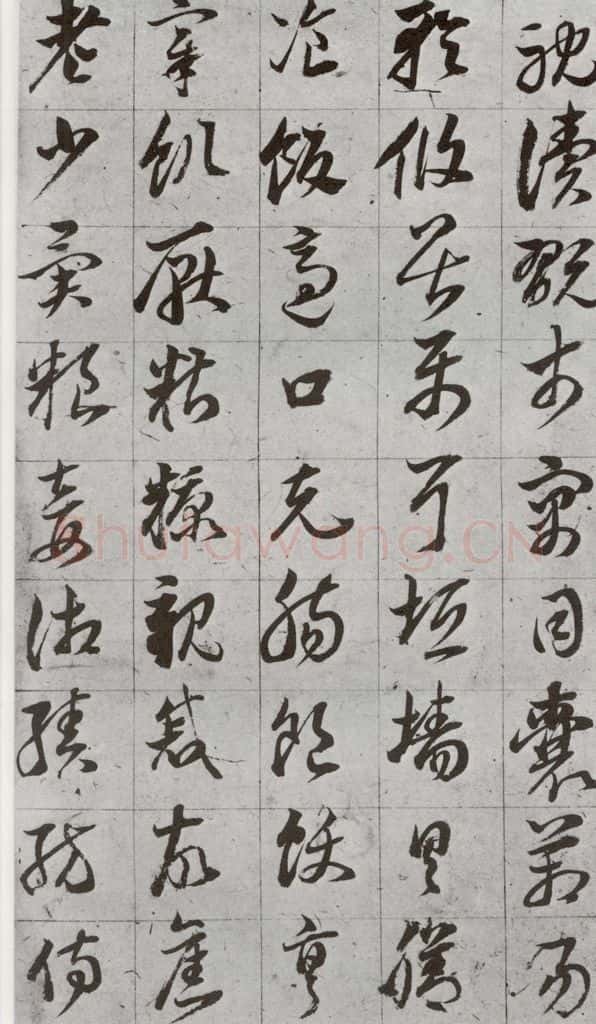 耽讀翫市寓目囊箱易
輶攸畏屬耳垣墻具膳
飡飯適口充腸飽飫烹
宰飢厭糟糠親戚故舊
老少異糧妾御績紡侍
Shufawang.CN